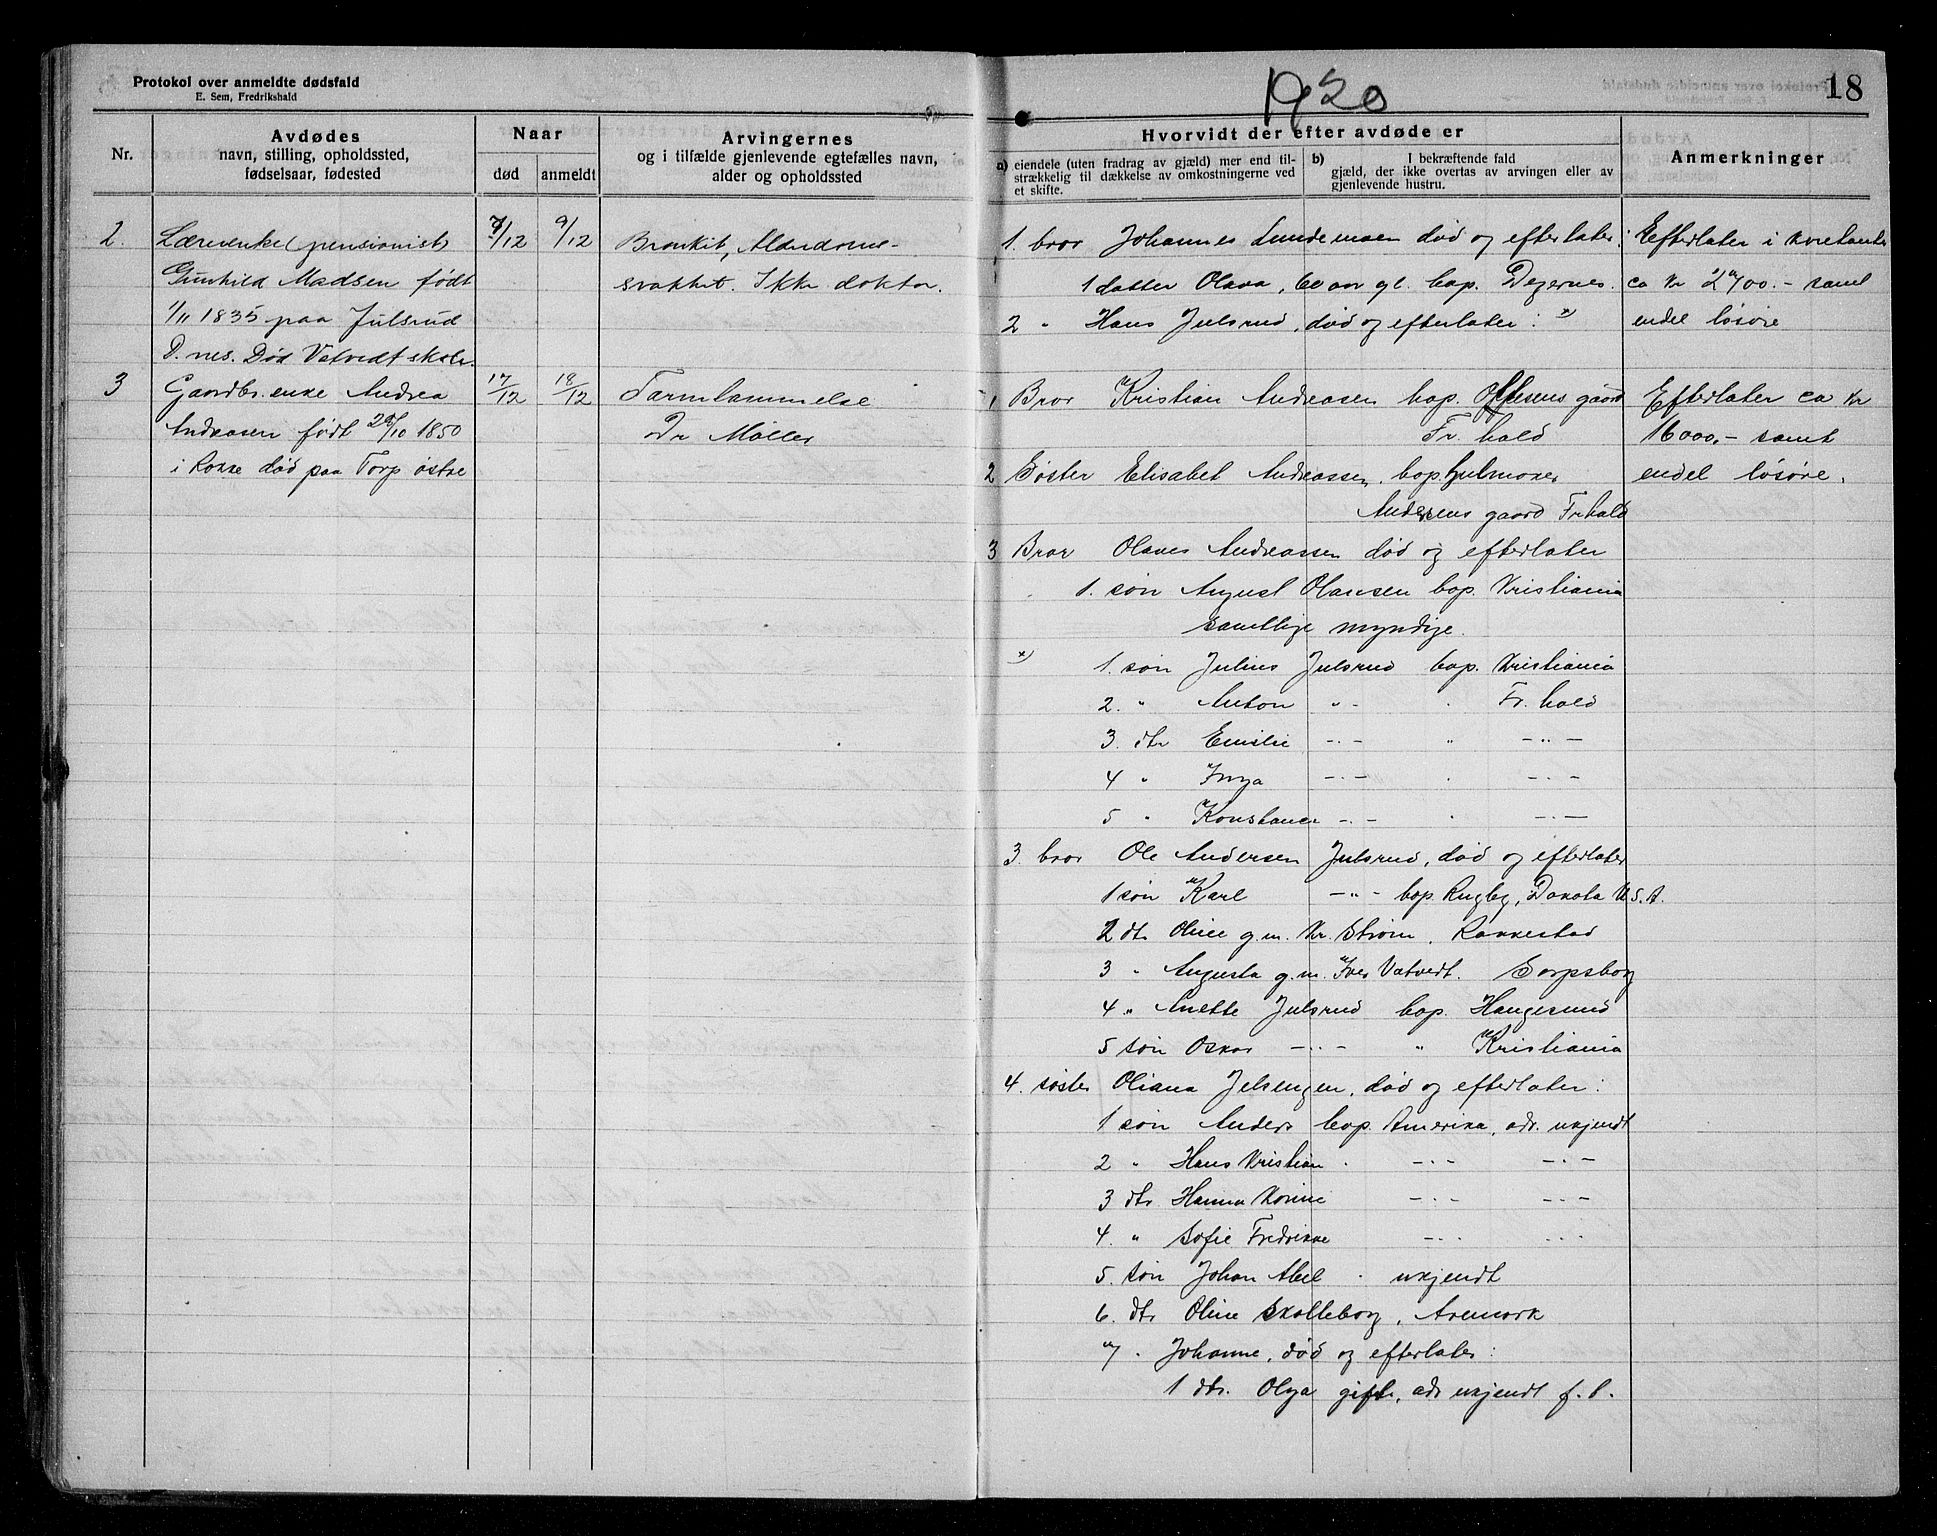 Protokol over anmeldte dødsfald
E. Sem, Fredrikshald
1920
18
Nr.
Avdødes
navn, stilling, opholdssted,
fødselsaar, fødested
Naar
død
anmeldt
Arvingernes
og i tilfælde gjenlevende egtefælles navn,
alder og opholdssted
Hvorvidt der efter avdøde er
a) eiendele (uten fradrag av gjæld) mer end til-
strækkelig til dækkelse av omkostningerne ved
et skifte.
b) I bekræftende fald
gjæld, der ikke overtas av arvingen eller av
gjenlevende hustru.
Anmerkninger
2. Lærerenke (pensionist)
Gunhild Madsen født
1/11 1835 paa Julsrud
D.nes. Død Vatvedt skole.
7/12
9/12
Bronkit, Alderdoms-
svakhet. Ikke doktor.
1. bror Johannes Lundemoen død og efterlater:
1 datter Olava, 60 aar gl. bop. Degernes.
2 " Hans Julsrud, død og efterlater: x)
Efterlater i kontanter
ca kr 2700.- samt
endel løsøre
3 Gaardbr. enke Andrea
Andreasen født 28/10 1850
i Rokke død paa Torp østre
17/12
18/12
Tarmlammelse
Dr Møller
1 Bror Kristian Andreasen bop. Olsens gaard
Fr.hald
2 Søster Elisabet Andreassen, bop. Hjulmaker
Andersens gaard Fr hald
3 Bror Olaves Andreassen død og efterlater
1. søn August Olavsen bop. Kristiania
samtlige myndige.
Efterlater ca kr
16000.- samt
endel løsøre.
x) 1. søn Julius Julsrud bop. Kristiania
2. " Anton " - " Fr. hald
3. dtr Emilie -"- " -"-
4 " Inga -"- " -"-
5 " Konstance -"- " -"-
3. bror Ole Andersen Julsrud, død og efterlater
1 søn Karl -"- bop. Rugby, Dakota U.S.A.
2 dtr Oline g.m. Kr. Strøm, Rakkestad
3 " Augusta g.m. Iver Vatvedt. Sarpsborg
4 " Anette Julsrud bop. Haugesund
5 søn Oskar -"- " Kristiania
4. søster Oliana Jelsengen, død og efterlater:
1 søn Anders bop. Amerika, adr. ukjendt
2 " Hans Kristian " -"- -"-
3 dtr Hanna Korine -"- -"-
4. " Sofie Fredrikke -"- -"-
5. søn Johan Abel " ukjendt
6. dtr Oline Skolleborg, Aremark
7 " Johanne, død og efterlater:
1 dtr. Olga gift, adr ukjendt f. t.